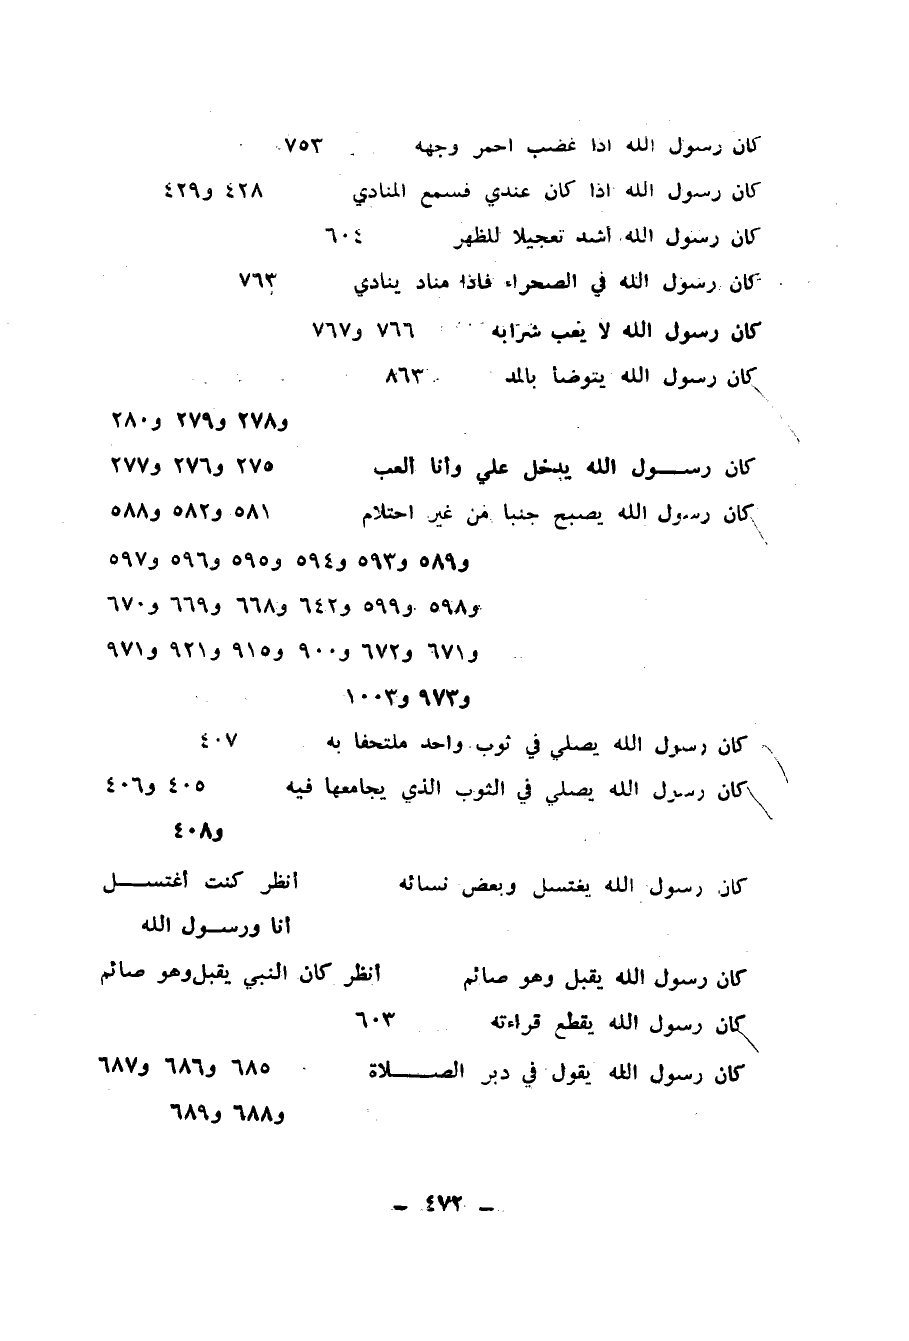 كان رسول الله اذا غضب احمر وجهه ٧٥٣
كان رسول الله اذا كان عندي فسمع المنادي ٤٢٨ و٤٢٩
كان رسول الله أشد تعجيلا للظهر ٦٠٤
كان رسول الله في الصحراء فاذا مناد ينادي ٧٦٣
كان رسول الله لا يغب شرابه ٧٦٦ و٧٦٧
كان رسول الله يتوضأ بالمد ٨٦٣
و٢٧٨ و٢٧٩ و٢٨٠
كان رســـول الله يدخل علي وأنا ألعب ٢٧٥ و٢٧٦ و٢٧٧
كان رسول الله يصبح جنبا من غير احتلام ٥٨١ و٥٨٢ و٥٨٨
و٥٨٩ و٥٩٣ و٥٩٤ و٥٩٥ و٥٩٦ و٥٩٧
و٥٩٨ و٥٩٩ و٦٤٢ و٦٦٨ و٦٦٩ و٦٧٠
و٦٧١ و٦٧٢ و٩٠٠ و٩١٥ و٩٢١ و٩٧١
و٩٧٣ و١٠٠٣
كان رسول الله يصلي في ثوب واحد ملتحفا به ٤٠٧
كان رسول الله يصلي في الثوب الذي يجامعها فيه ٤٠٥ و٤٠٦
و٤٠٨
كان رسول الله يغتسل وبعض نسائه أنظر كنت أغتســـل
أنا ورســول الله
كان رسول الله يقبل وهو صائم أنظر كان النبي يقبل وهو صائم
كان رسول الله يقطع قراءته ٦٠٣
كان رسول الله يقول في دبر الصـــــلاة ٦٨٥ و٦٨٦ و٦٨٧
و٦٨٨ و٦٨٩
– ٤٧٢ –